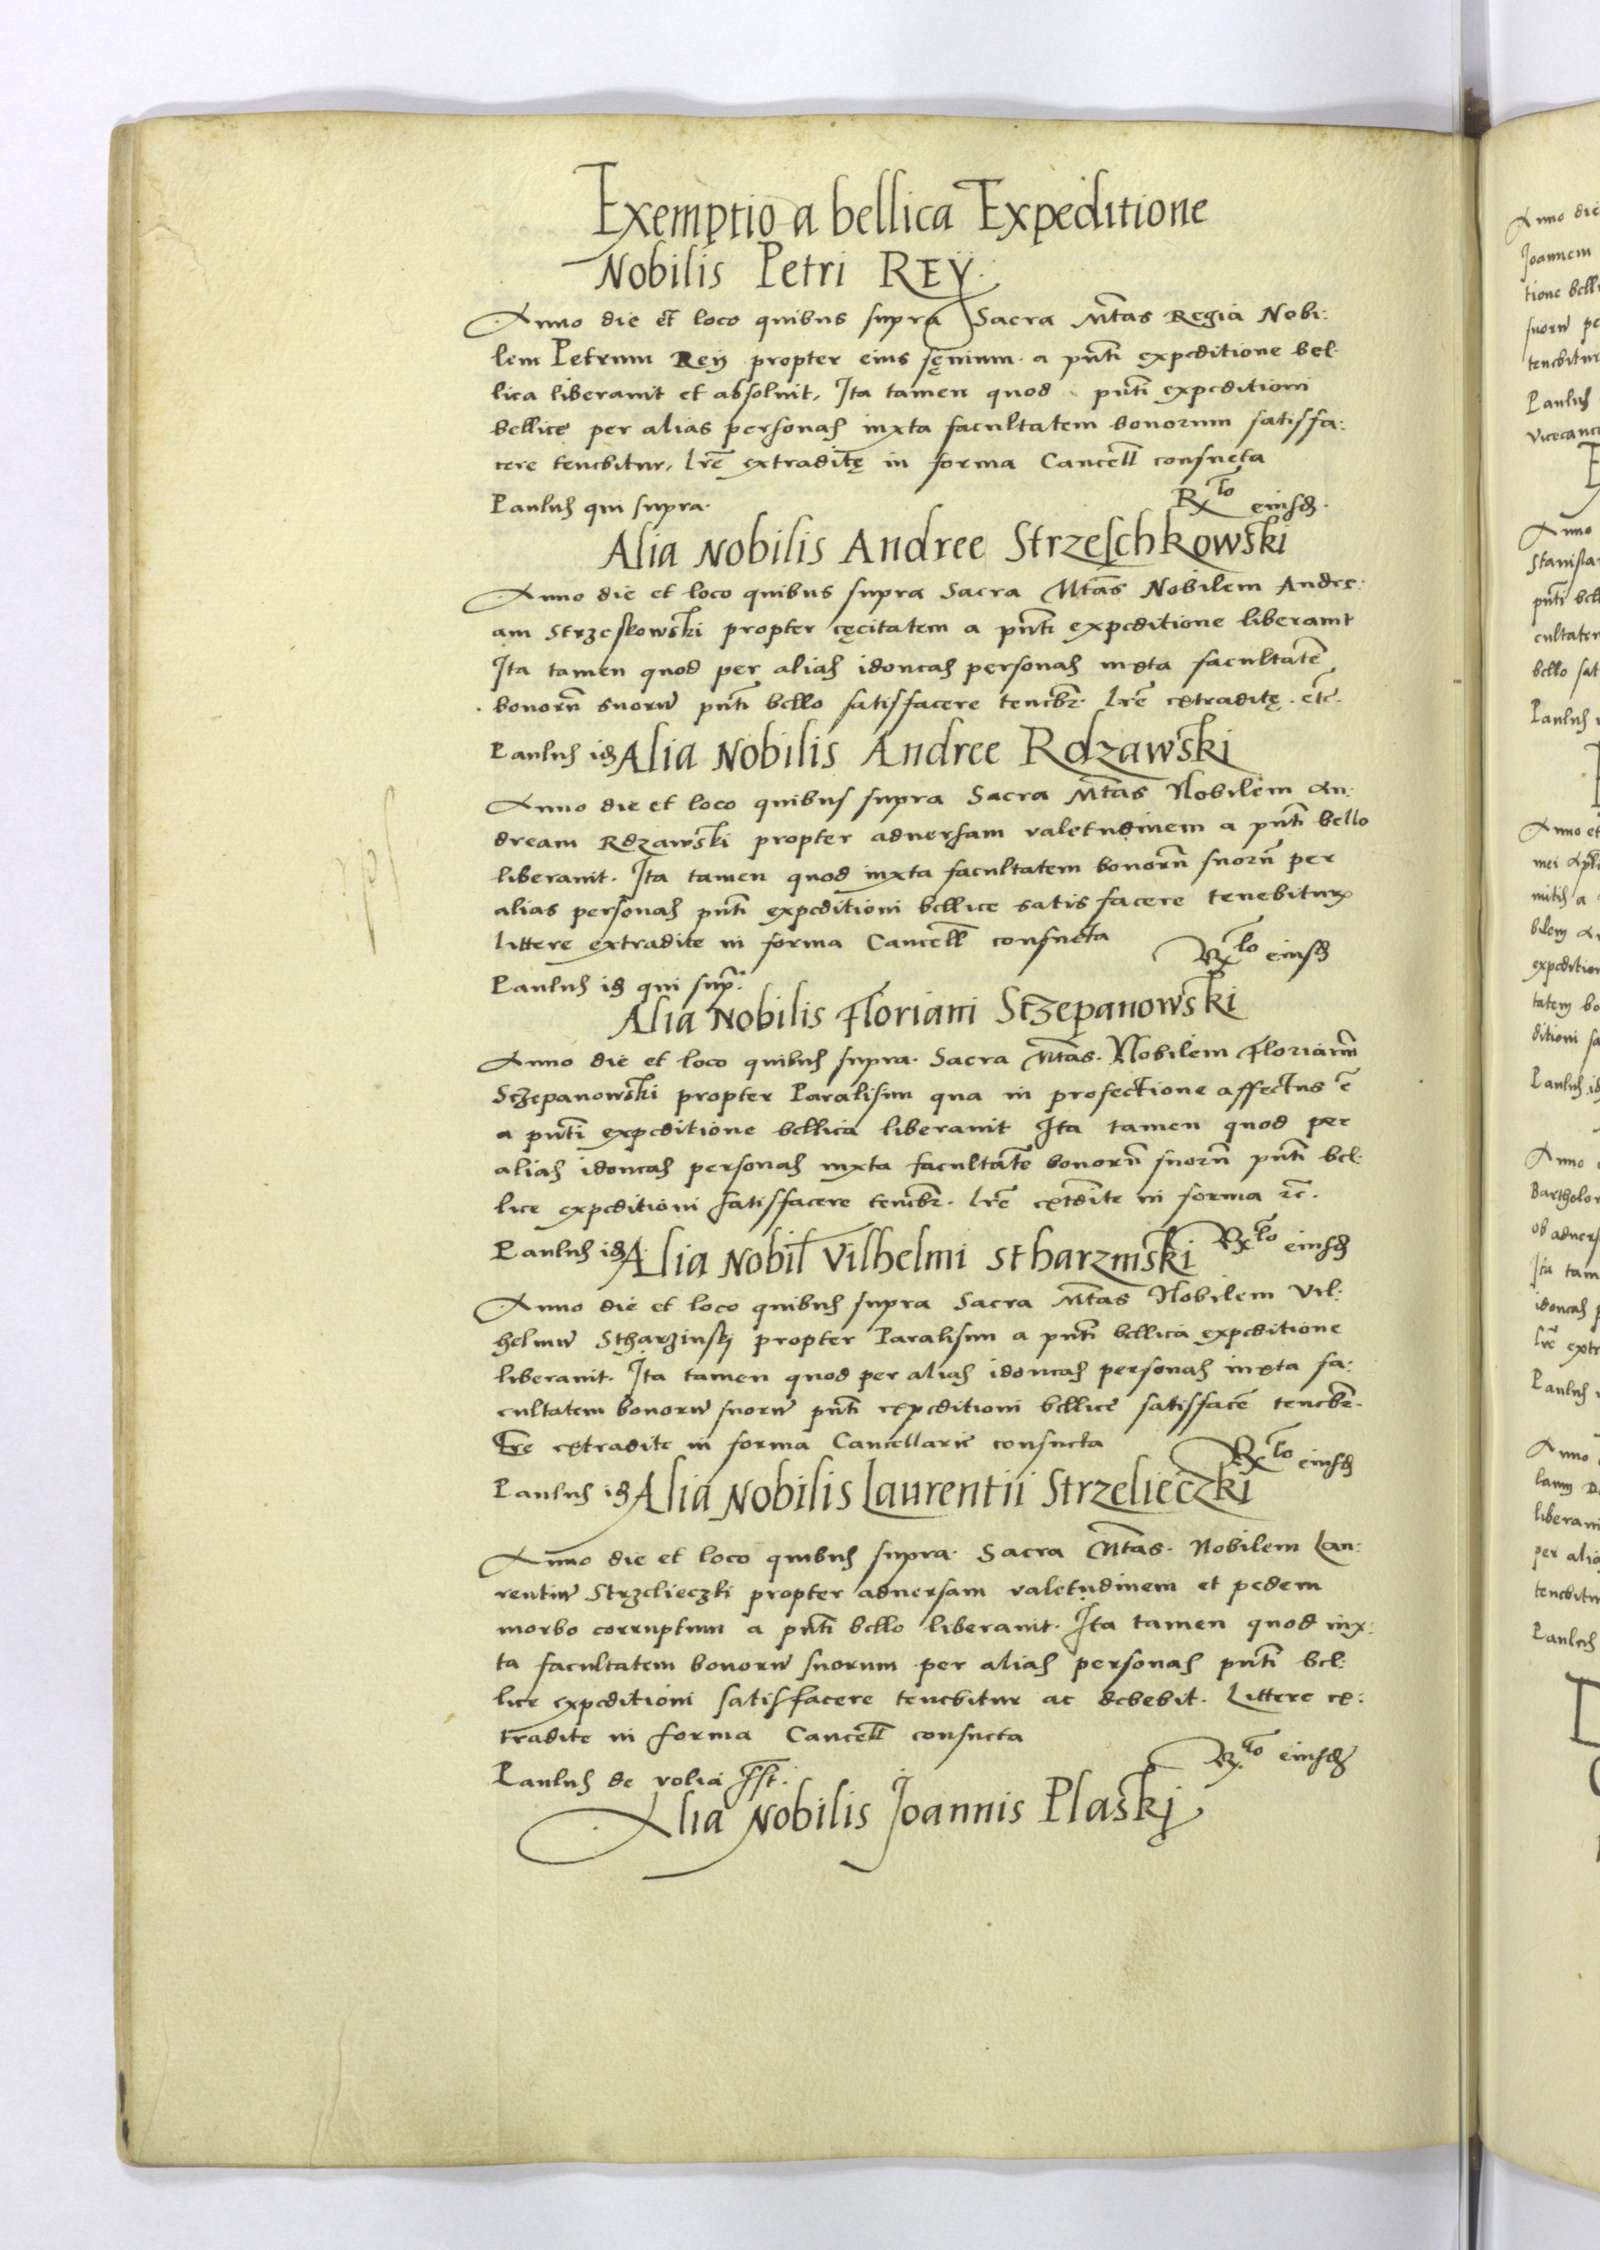 Exemptio a bellica Expeditione
Nobilis Petri REÿ.
Anno die et loco quibus supra Sacra Mtas Regia Nobi:
lem Petrum Reij propter eius sęnium a pnti expeditione bel:
lica liberauit et absoluit, Ita tamen quod pnti expeditioni
bellice per alias personas iuxta facultatem bonorum satisfa:
cere tenebitur, Lre extraditę in forma Cancell consueta
Paulus qui supra. Rlo eiusd.
Alia Nobilis Andree Strzeschkowski
Anno die et loco quibus supra Sacra Mtas Nobilem Andre:
am Strzeskowski propter cęcitatem a pnti expeditione liberauit
Ita tamen quod per alias idoneas personas iuxta facultate
bonoru suoru pnti bello satisfacere tenebr. Lre extraditę. etc.
Paulus id Alia Nobilis Andree Rdzawski
Anno die et loco quibus supra Sacra Mtas Nobilem An:
dream Rdzawski propter aduersam valetudinem a pnti bello
liberauit. Ita tamen quod iuxta facultatem bonoru suoru per
alias personas pnti expeditioni bellice satis facere tenebitur
Littere extradite in forma Cancell consueta Rlo eiusd
Paulus id qui sup.
Alia Nobilis Floriani Sczepanowski
Anno die et loco quibus supra. Sacra Mtas. Nobilem Florianu
Sczepanowski propter Paralisim qua in profectione affectus e
a pnti expeditione bellica liberauit Ita tamen quod per
alias idoneas personas iuxta facultate bonoru suoru pnti bel:
lice expeditioni satisfacere tenebr. Lre extdite in forma etc.
Paulus id Alia Nobil Vilhelmi Stharzinski Rlo eiusd
Anno die et loco quibus supra Sacra Mtas Nobilem Vil:
helmu Stharzinskj propter Paralisim a pnti bellica expeditione
liberauit. Ita tamen quod per alias idoneas personas iuxta fa:
cultatem bonoru suoru pnti expeditioni bellice satisface tenebr.
Lre extradite in forma Cancellarie consueta Rlo eiusd
Paulus id Alia Nobilis Laurentii Strzelieczki
Anno die et loco quibus supra. Sacra Mtas. Nobilem Lau:
rentiu Strzelieczki propter aduersam valetudinem et pedem
morbo corruptum a pnti bello liberauit. Ita tamen quod iux:
ta facultatem bonoru suorum per alias personas pnti bel:
lice expeditioni satisfacere tenebitur ac debebit. Littere ex:
tradite in forma Cancell consueta Rlo eiusd
Paulus de volia sst.
Alia Nobilis Joannis Plaskj